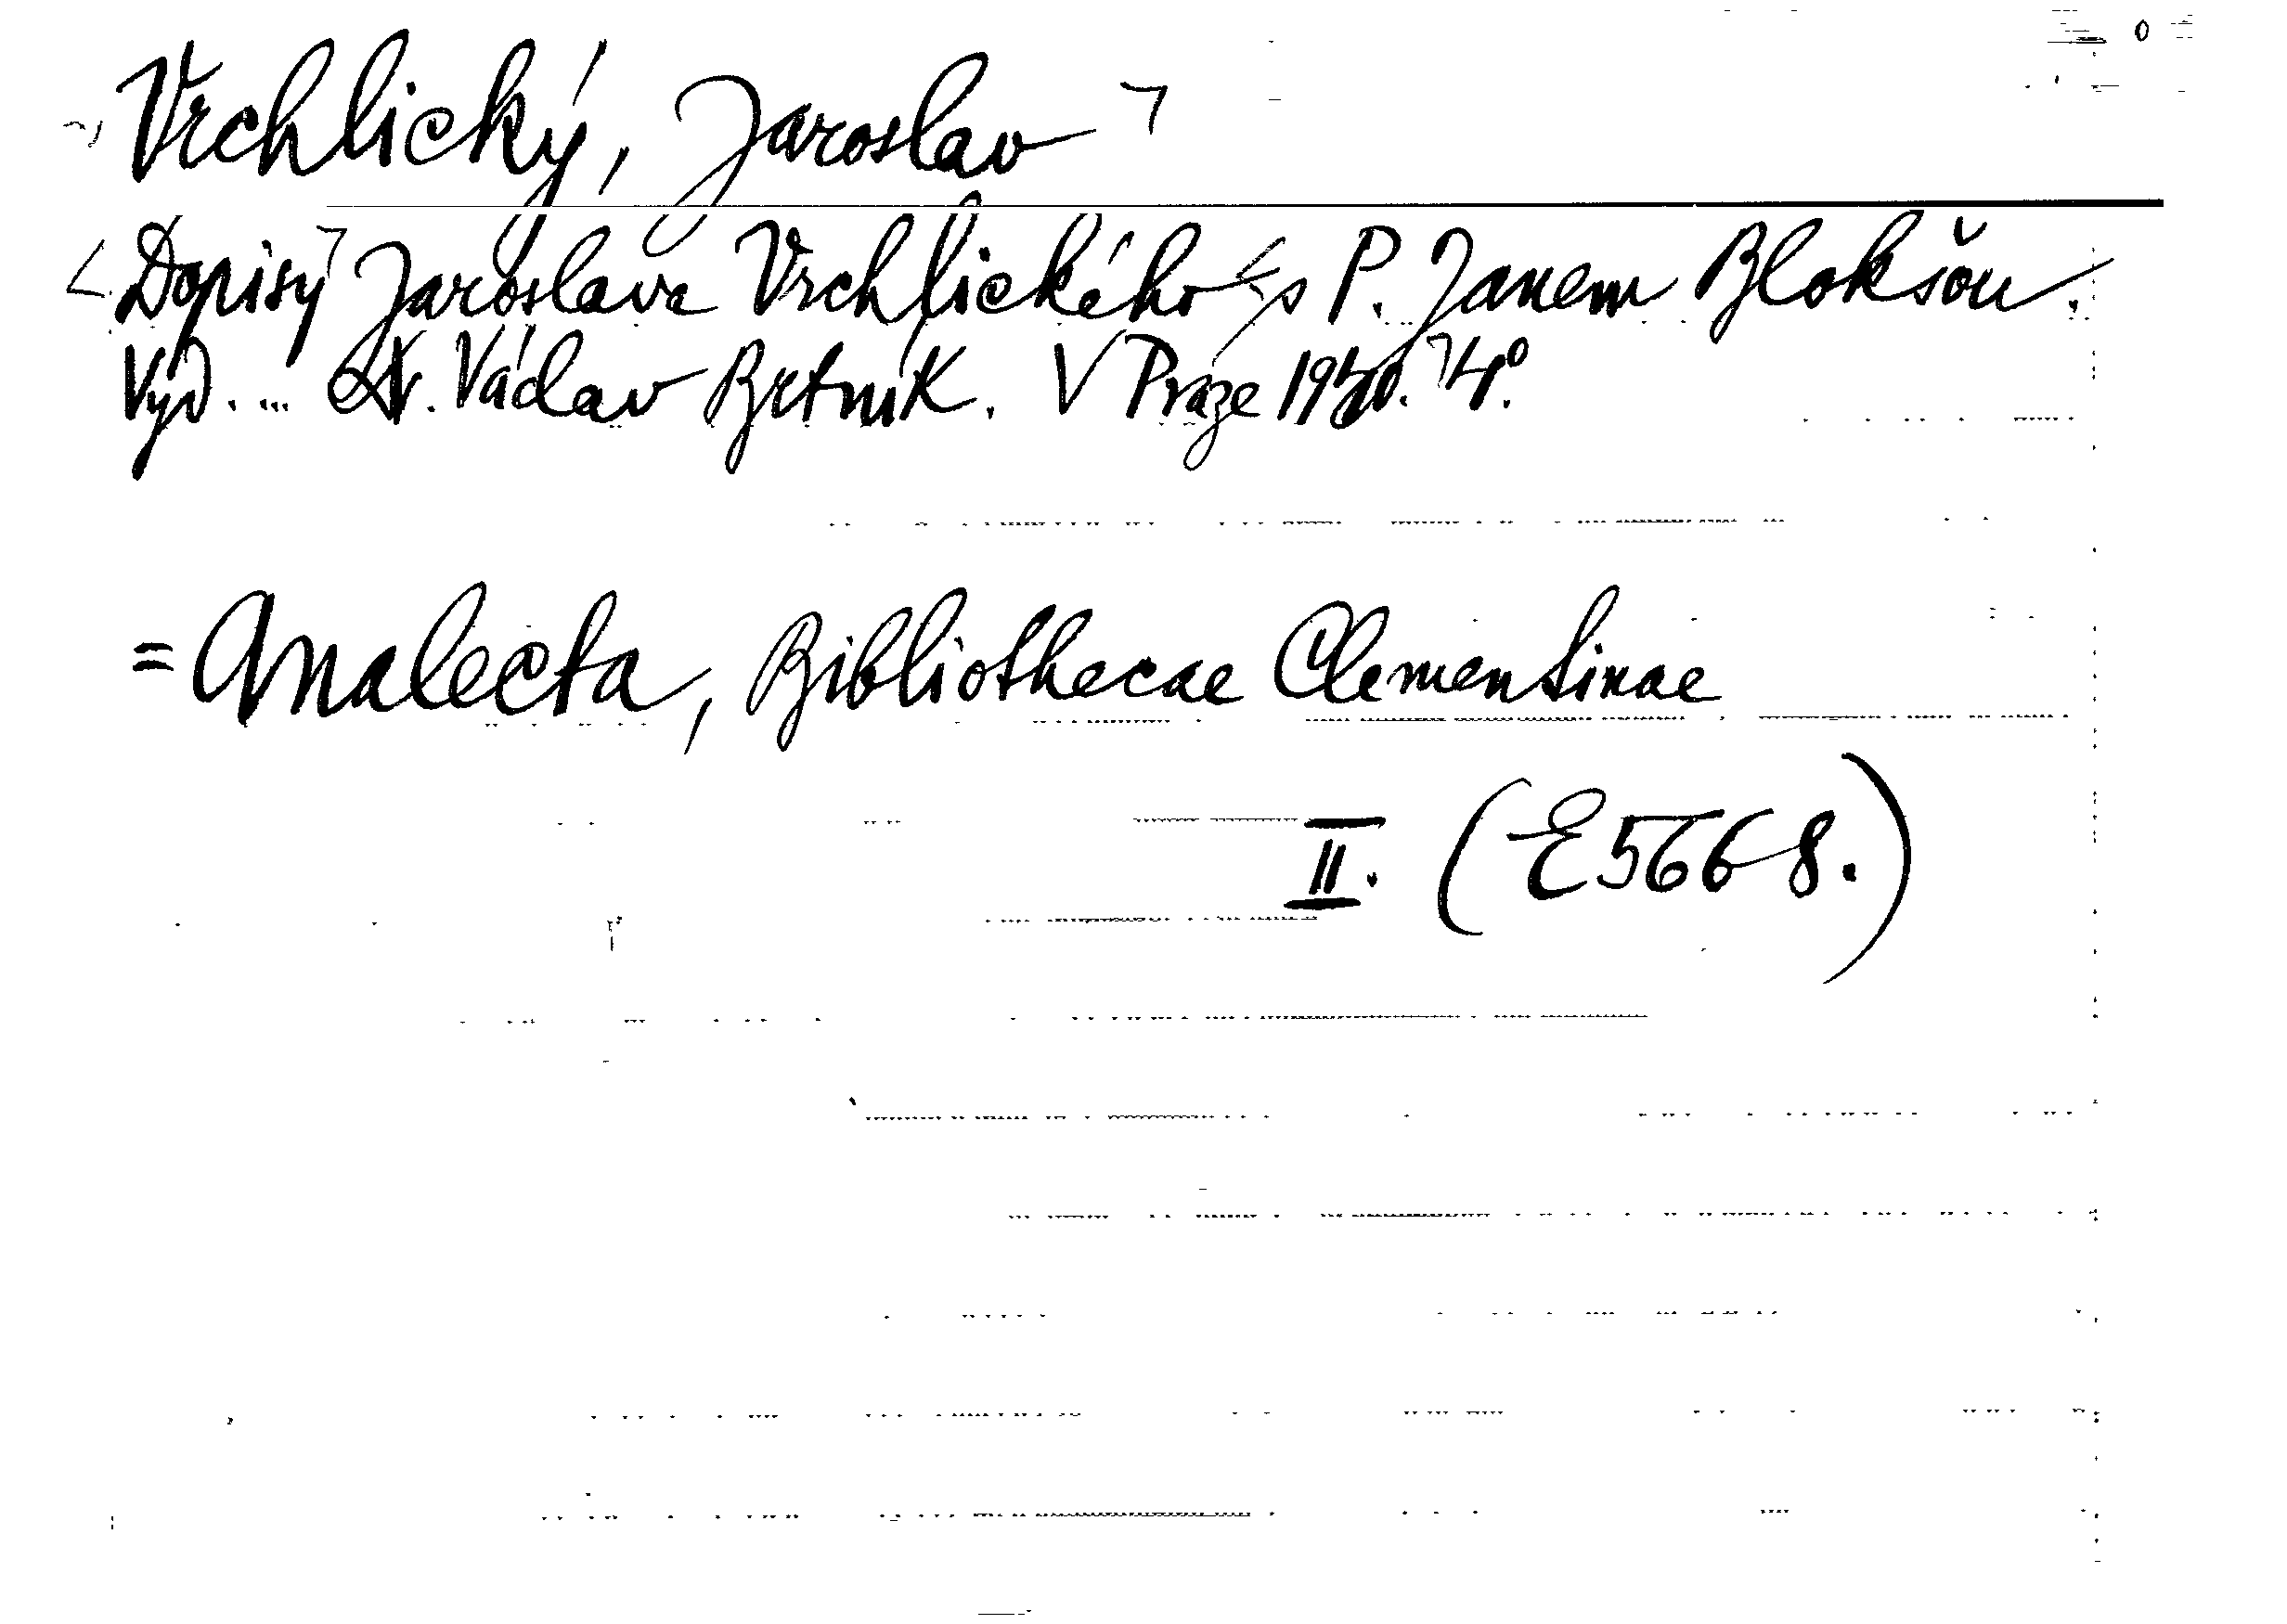 Vrchlický, Jaroslav
Dopisy Jaroslava Vrchlického s P. Janem Blokšou.
Vyd. ... Dr. Václav Brtník. V Praze 1940. 4°.
= Analecta, Bibliothecae Clementinae
II. (E 5668.)